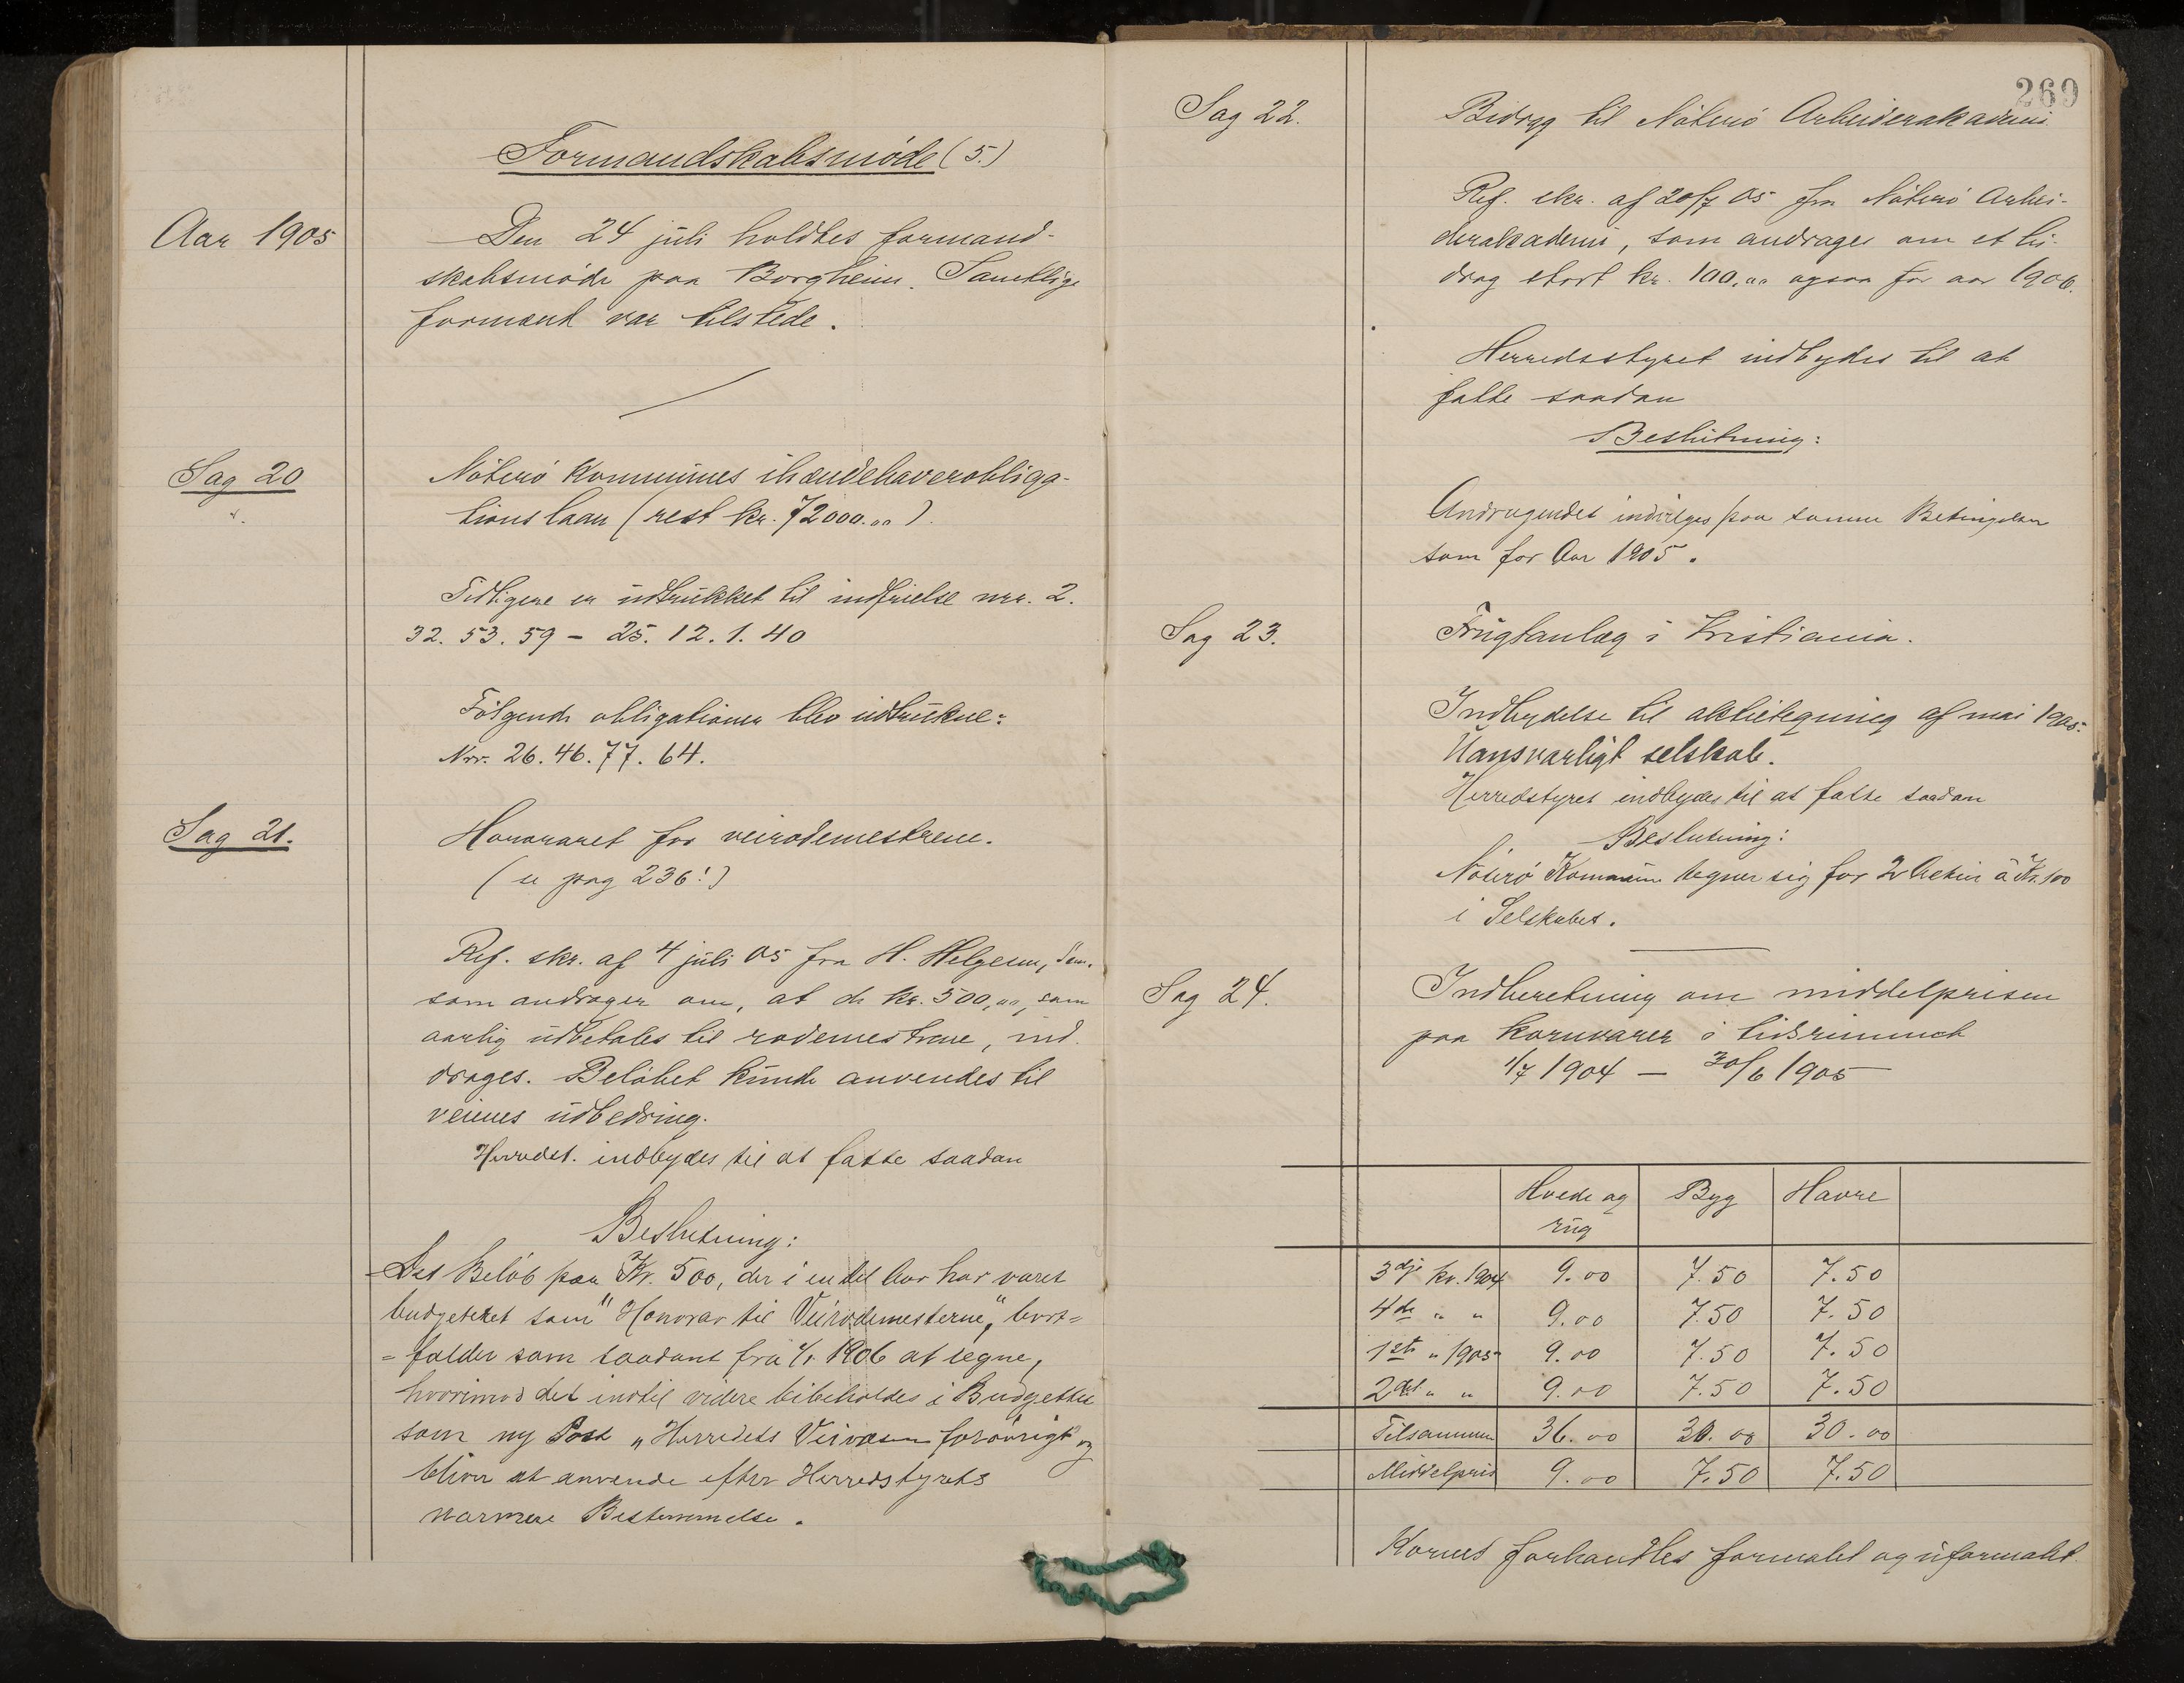 Formandskabsmöde (5.)
Aar 1905
Den 24 juli holdtes formand-
skabsmöde paa Borgheim. Samtlige
formænd var tilstede.
Sag 20
Nöterö kommunes ihændehaverobliga-
tionslaan (rest kr. 72000.00).
Tidligere er udtrukket til indfrielse nrr. 2.
32. 53. 59 – 25. 12. 1. 40
Følgende obligationer blev udtrukne:
Nrr. 26. 46. 77. 64.
Sag 21.
Honoraret for veirodemestrene.
(se pag 236!)
Ref. skr. af 4 juli 05 fra H. Helgesen, Sem.
som andrager om, at de kr. 500,00, som
aarlig udbetales til rodemestrene, ind
drages. Belöbet kunde anvendes til
veienes udbedring.
Herredst. indbydes til at fatte saadan
Beslutning:
Det Belöb paa Kr. 500, der i en del Aar har været
budgetteret som "Honorar til Veirodemesterne", bort=
=falder som saadant fra 1/1 1906 at regne,
hvorimod det indtil videre bibeholdes i Budgettet
som ny Post „Herredets Veivæsen forövrigt og
bliver at anvende efter Herredstyrets
nærmere Bestemmelse.
269
Sag 22.
Bidrag til Nöterö Arbeiderakademi
Ref. skr. af 20/7 05 fra Nöterö Arbei-
derakademi, som andrager om et bi-
drag stort kr. 100,00 ogsaa for aar 1906.
Herredsstyret indbydes til at
fatte saadan
Beslutning:
Andragendet indvilges paa samme Betingelser
som for Aar 1905.
Sag 23.
Frugtanlæg i Kristiania.
Indbydelse til aktietegning af mai 1905.
Uansvarligt selskab.
Herredstyret indbydes til at fatte saadan
Beslutning:
Nöterö Kommune tegner sig for 2 Aktier à Kr. 100
i Selskabet.
Sag 24.
Indberetning om middelprisen
paa kornvarer i tidsrummet
1/7 1904 — 30/6 1905
Hvede og rug Byg Havre
3dje kv. 1904 9.00 7.50 7.50
4de " " 9.00 7.50 7.50
1ste " 1905 9.00 7.50 7.50
2det " " 9.00 7.50 7.50
Tilsammen 36.00 30.00 30.00
Middelpris 9.00 7.50 7.50
Kornet forhandles formalet og uformalet.